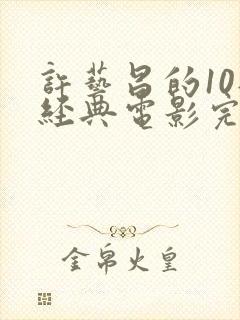 許藝呂的10
經典電影完
金帛火皇